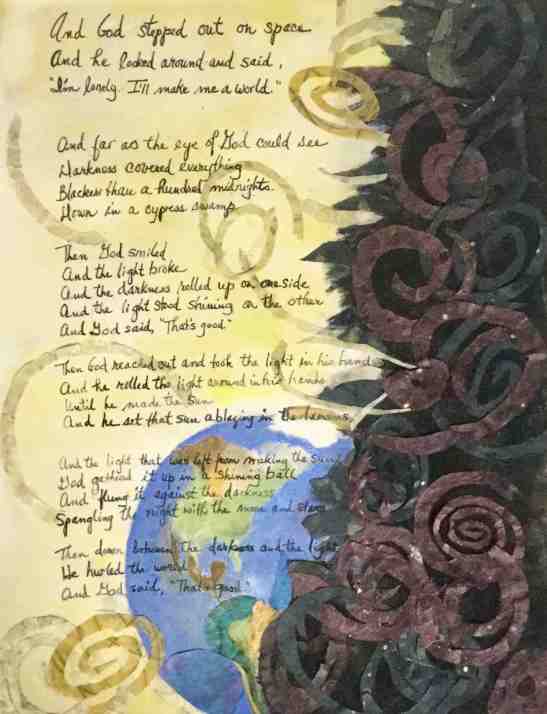 And God stepped out on space
And he looked around and said,
"I'm lonely. I'll make me a world."
And far as the eye of God could see
Darkness covered everything
Blacker than a hundred midnights.
Down in a cypress swamp.
Then God smiled
And the light broke
And the darkness rolled up on one side
And the light stood shining on the other
And God said, "That's good."
Then God reached out and took the light in his hands
And he rolled the light around in his hands
Until he made the sun
And he set that sun a blazing in the heavens
And the light that was left from making the sun
God gathered it up in a shining ball
And flung it against the darkness
Spangling the night with the moon and stars
Then down between the darkness and the light
He hurled the world
And God said, "That's good"